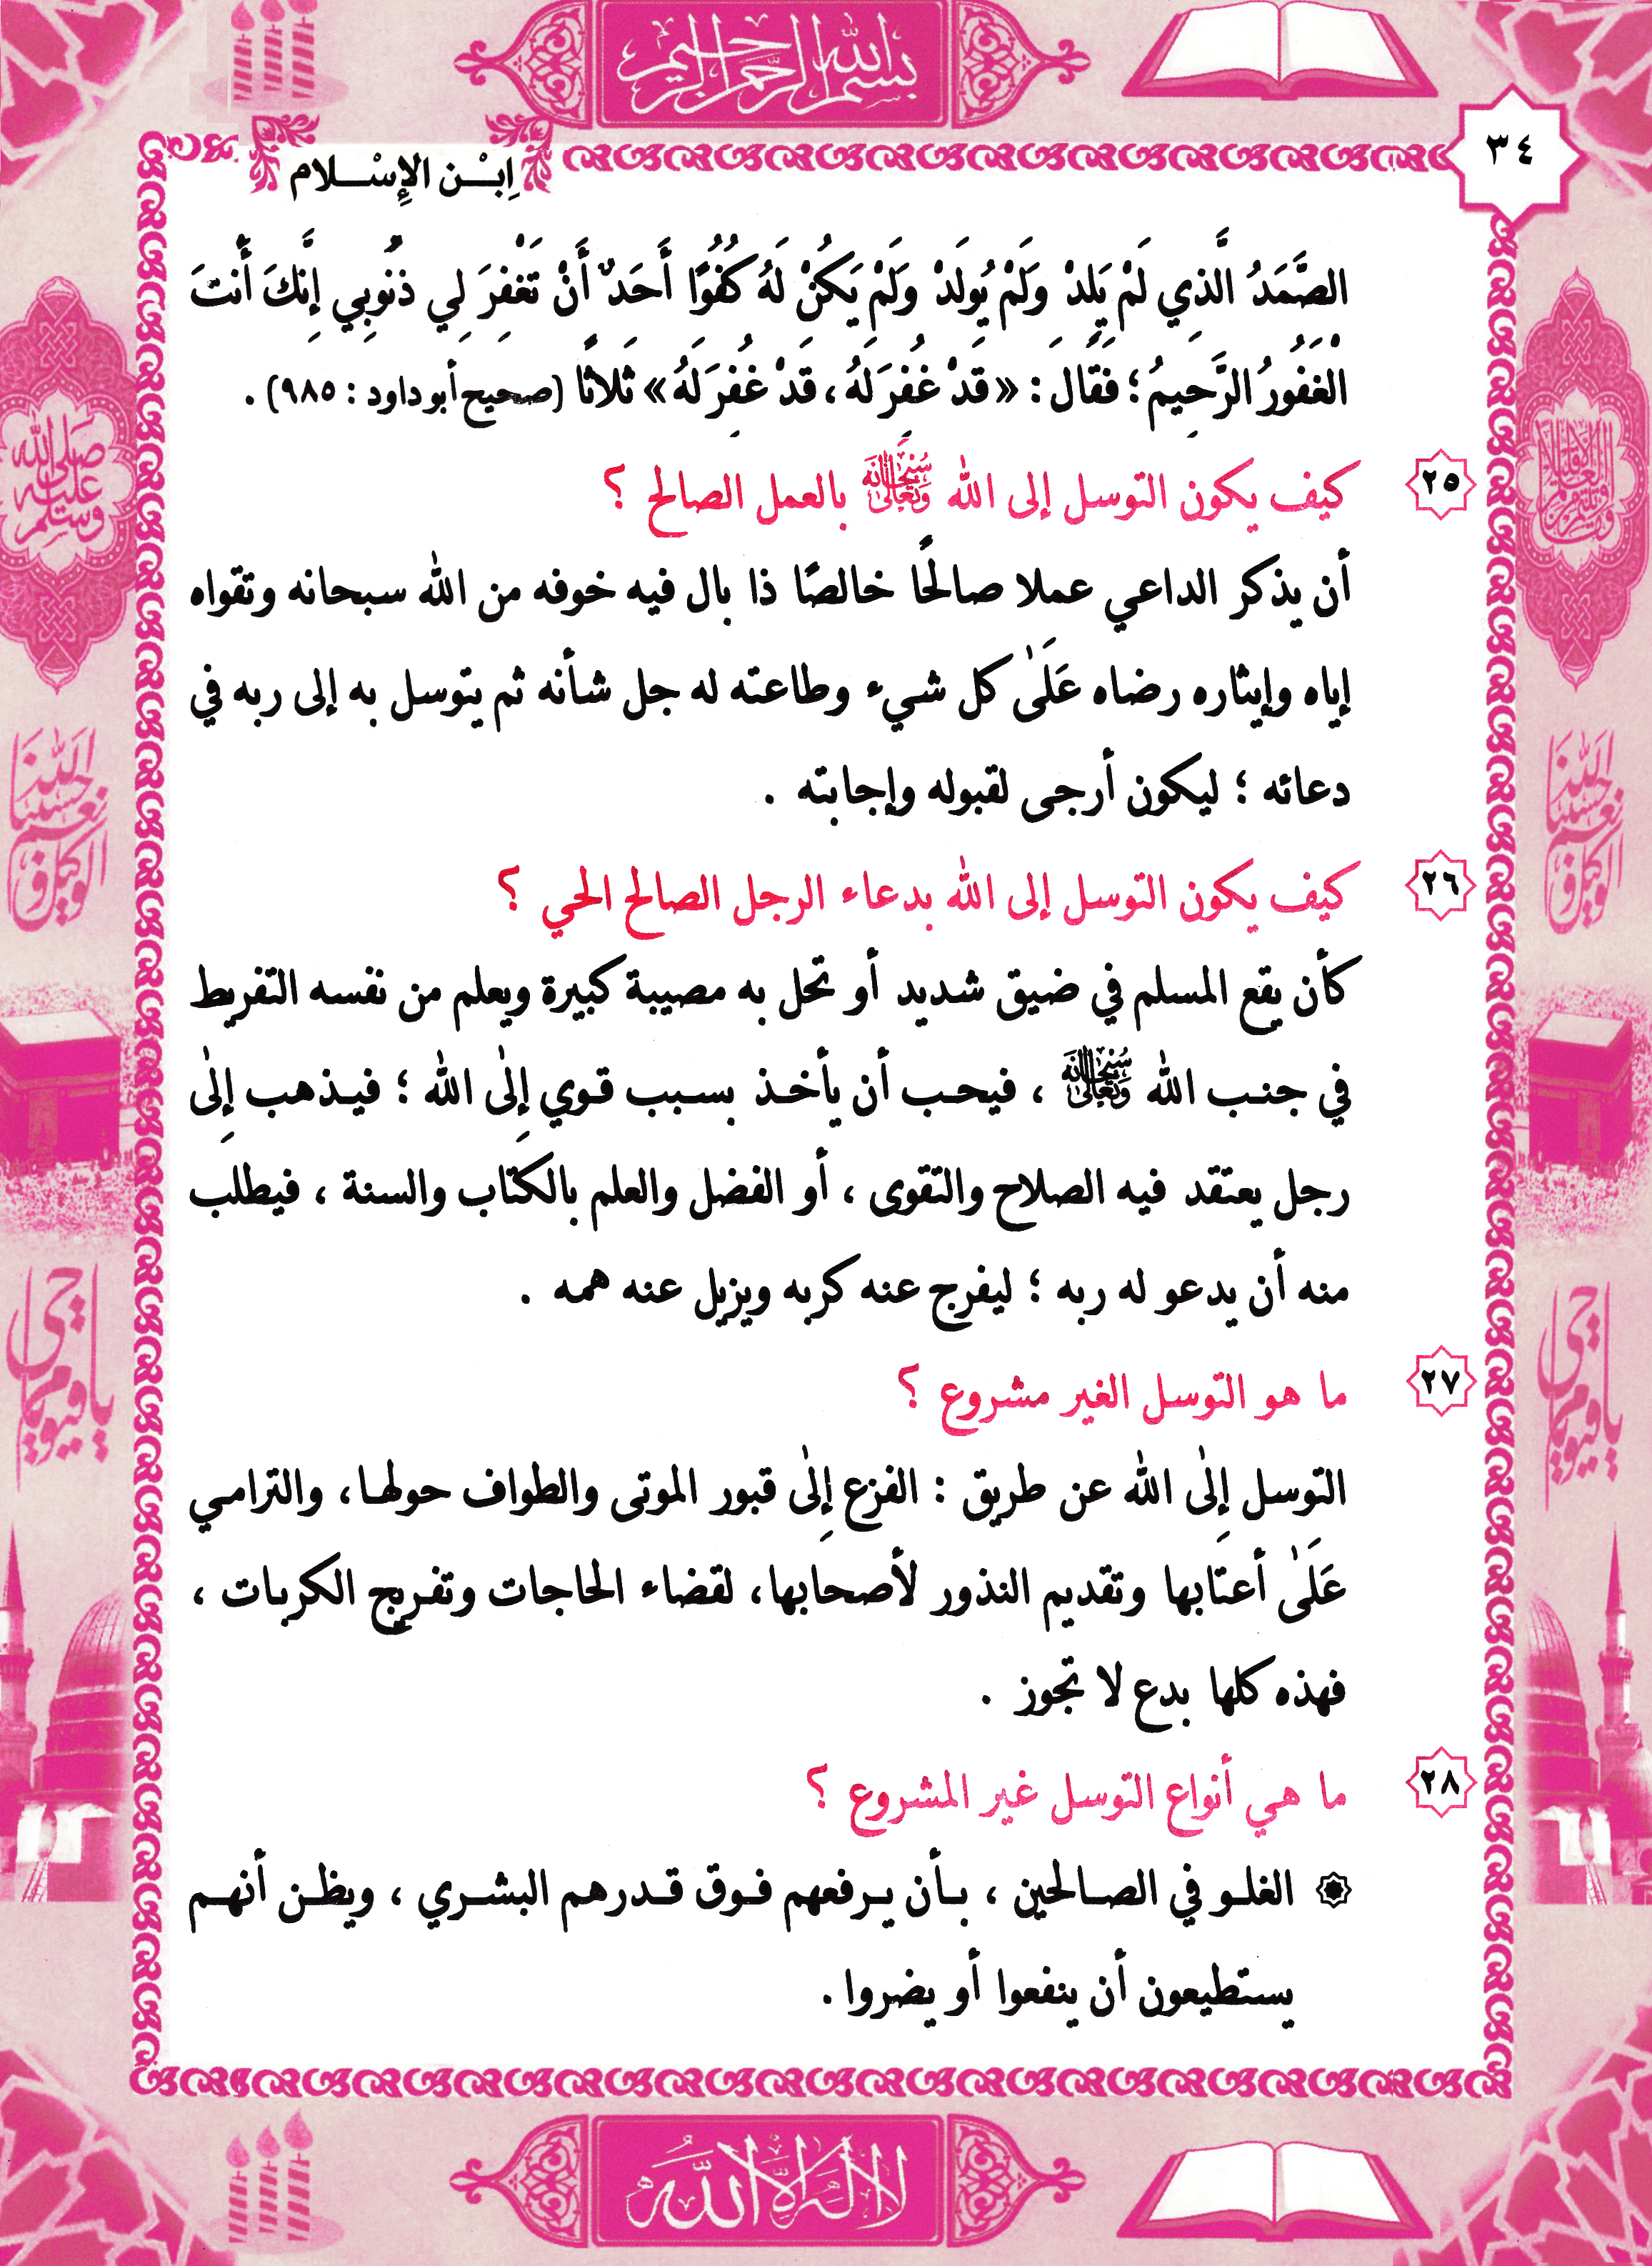 بسم الله الرحمن الرحيم
٣٤
اِبْـن الإِسْـلام
الصَّمَدُ الَّذِي لَمْ يَلِدْ وَلَمْ يُولَدْ وَلَمْ يَكُنْ لَهُ كُفُوًا أَحَدٌ أَنْ تَغْفِرَ لِي ذنُوبِي إِنَّكَ أَنتَ
الْغَفُورُ الرَّحِيمُ ؛ فَقَالَ : « قَدْ غُفِرَ لَهُ ، قَدْ غُفِرَ لَهُ » ثَلاثًا (صحيح أبو داود : ٩٨٥) .
٢٥ كيف يكون التوسل إلى الله سُبْحَانَهُ وَتَعَالَى بالعمل الصالح ؟
أن يذكر الداعي عملا صالحًا خالصًا ذا بال فيه خوفه من الله سبحانه وتقواه
إياه وإيثاره رضاه عَلَىٰ كل شيء وطاعته له جل شأنه ثم يتوسل به إلى ربه في
دعائه ؛ ليكون أرجى لقبوله وإجابته .
٢٦ كيف يكون التوسل إلى الله بدعاء الرجل الصالح الحي ؟
كأن يقع المسلم في ضيق شديد أو تحل به مصيبة كبيرة ويعلم من نفسه التفريط
في جنب الله سُبْحَانَهُ وَتَعَالَى ، فيحب أن يأخذ بسبب قوي إِلٰى الله ؛ فيذهب إِلٰى
رجل يعتقد فيه الصلاح والتقوى ، أو الفضل والعلم بالكتاب والسنة ، فيطلب
منه أن يدعو له ربه ؛ ليفرج عنه كربه ويزيل عنه همه .
٢٧ ما هو التوسل الغير مشروع ؟
التوسل إِلٰى الله عن طريق : الفزع إِلٰى قبور الموتى والطواف حولها ، والترامي
عَلَىٰ أعتابها وتقديم النذور لأصحابها ، لقضاء الحاجات وتفريج الكربات ،
فهذه كلها بدع لا تجوز .
٢٨ ما هي أنواع التوسل غير المشروع ؟
۞ الغلو في الصالحين ، بأن يرفعهم فوق قدرهم البشري ، ويظن أنهم
يستطيعون أن ينفعوا أو يضروا .
صلى الله عليه وسلم
حسبنا الله ونعم الوكيل
يا حي يا قيوم
حسبنا الله ونعم الوكيل
يا حي يا قيوم
لا إله إلا الله